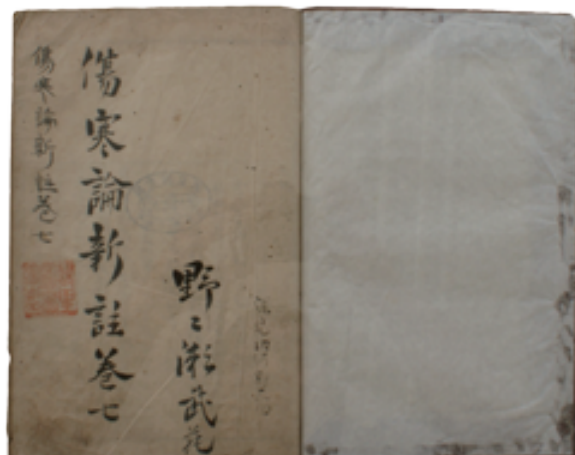 野々瀬武苑
傷寒論新註卷七
傷寒論新註卷七